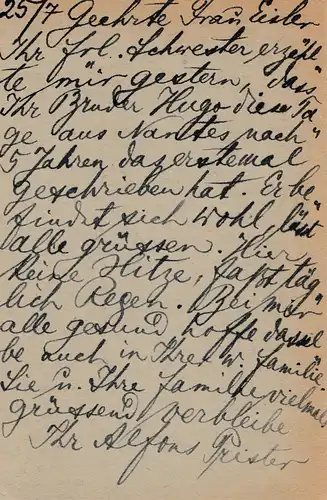 25/7 Geehrte Frau Eisler
Ihr Frl. Schwester, erzähl
te mir gestern, dass
Ihr Bruder Hugo diese Ta
ge aus Nantes nach
5 Jahren das erstemal
geschrieben hat. Er be
findet sich wohl, lässt
alle grüssen. Hier
keine Hitze, fasst täg
lich Regen. Bei mir
alle gesund hoffe dassel
be auch in Ihrer w. Familie
Sie u. Ihre Familie vielmals
grüssend verbleibe
Ihr Alfons Prister